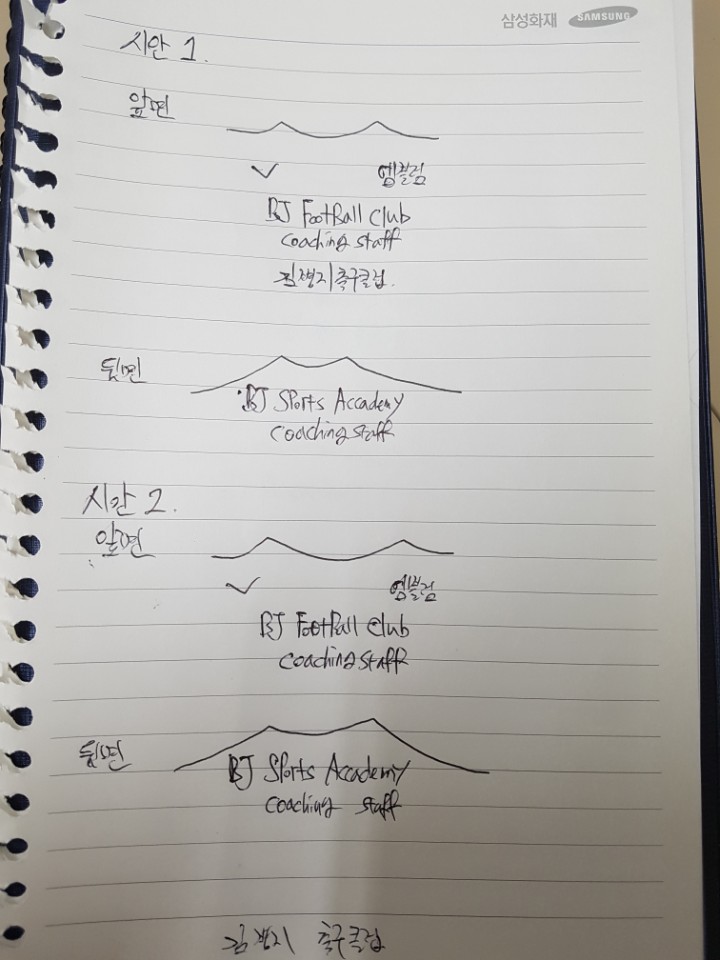 삼성화재 SAMSUNG
시안 1.
앞면
✓ 엠블럼
BJ FootBall Club
coaching staff
김병지축구클럽.
뒷면
BJ Sports Accademy
coaching staff
시안 2.
앞면
✓ 엠블럼
BJ FootBall Club
coaching staff
뒷면
BJ Sports Accademy
coaching staff
김병지 축구클럽